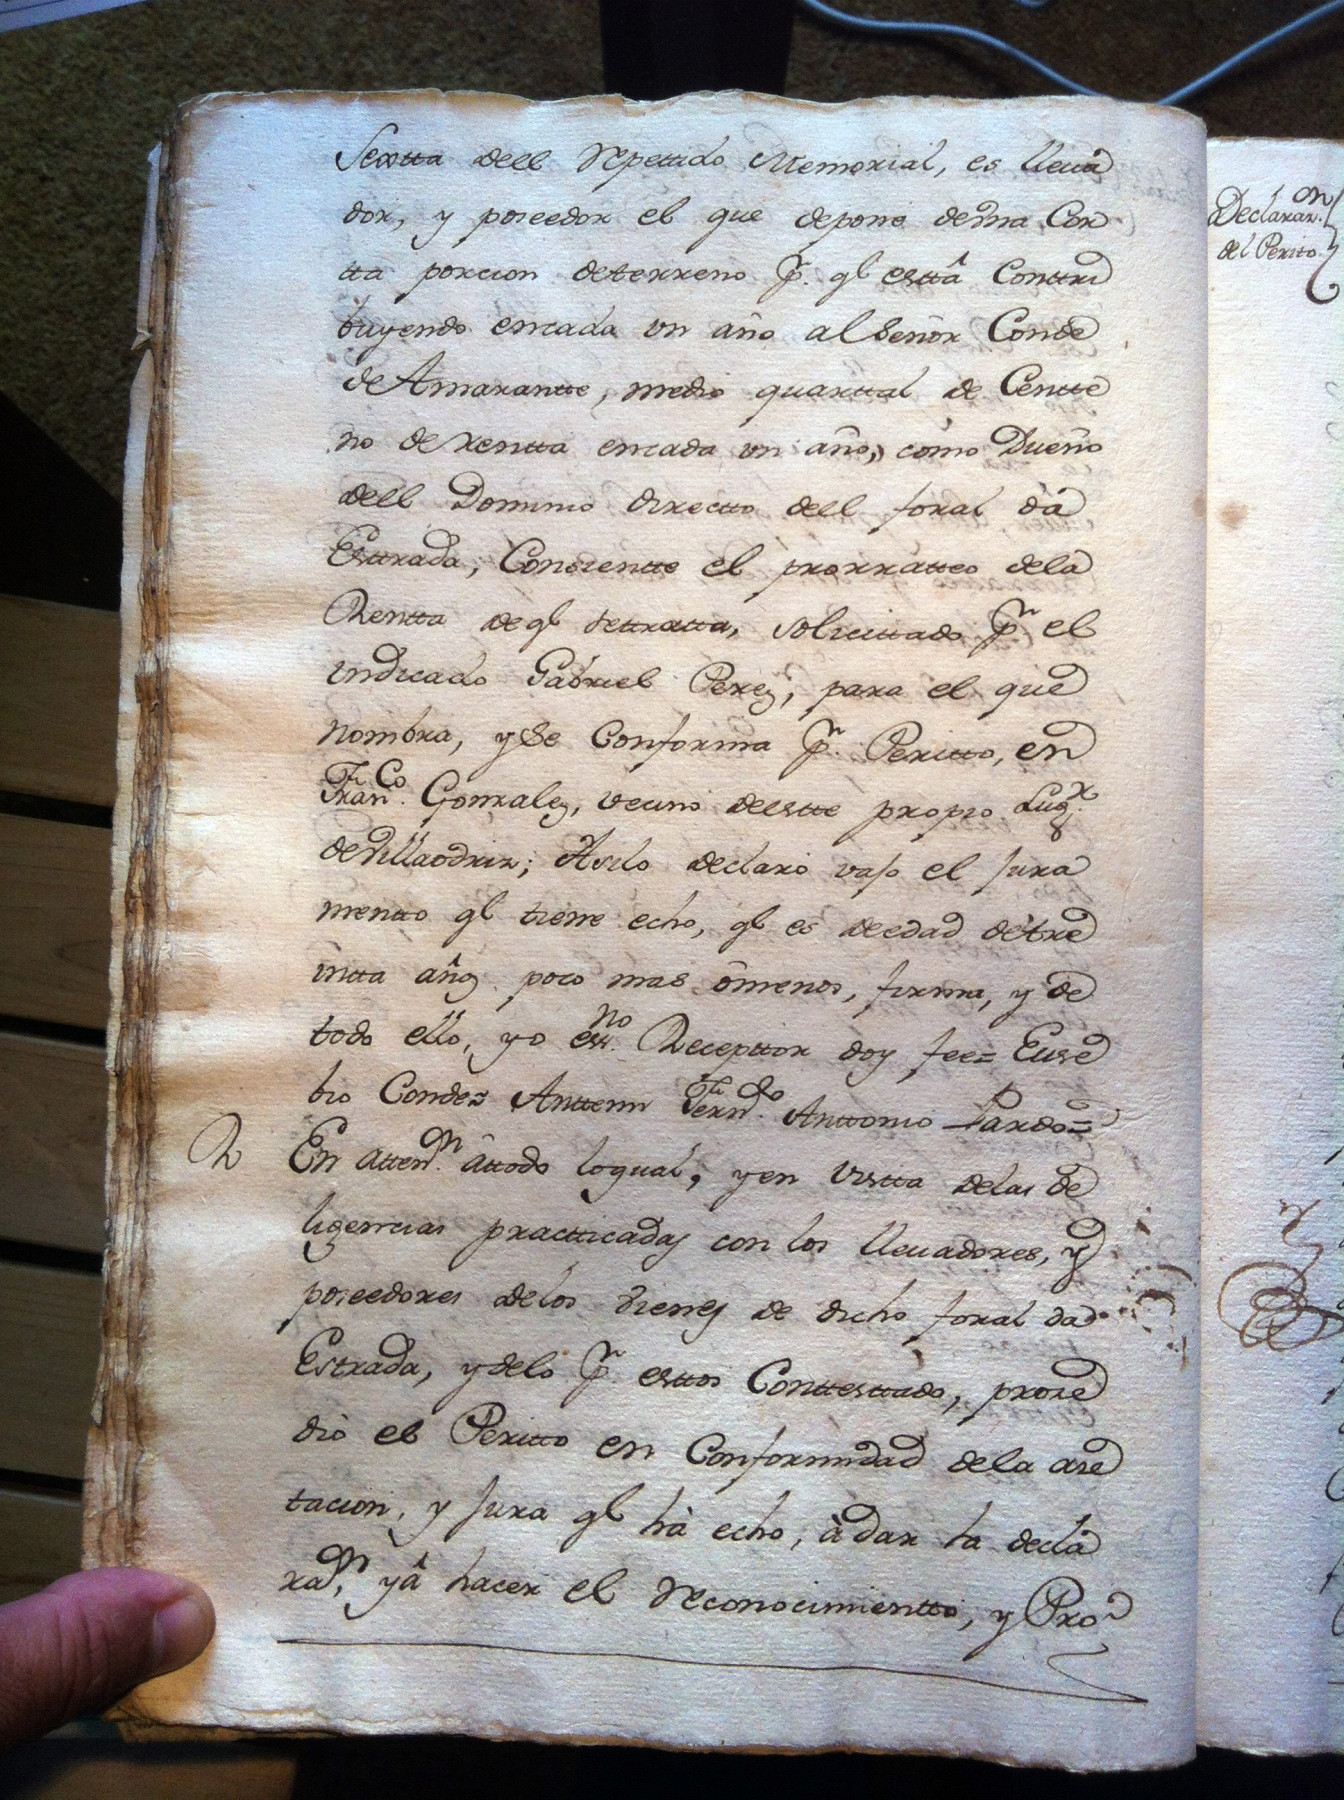 Sextta dell Repettido Memorial, es lleua
dor, y poseedor el que depone de una Cor
tta porcion de terreno Pr. ql esttâ Conttri
buyendo encada vn año al Señor Conde
de Amarantte, medio quarttal de Centte
no de renta encada vn año, como Dueño
dell Dominio directto dell foral dà
Esttrada, Consientte el prorratteo dela
Rentta de ql settratta, solicittado Pr el
indicado Gabriel Perez, para el que
nombra, y se Conforma Pr. Peritto, en
Franco. Gonzalez, vecino de estte propio Lugr.
de Villaodriz; Asilo declaró vajo el Jura
mentto ql tiene echo, ql es de edad de tre
intta años poco mas ô menos, firma, y de
todo ello, yo esno. Recepttor doy fee= Euse
bio Conde= Anttemi Ferndo. Anttonio Pardo=
R
En attenn. âttodo loqual, y en vistta delas de
ligencias practticadas con los lleuadores, y
poseedores delos vienes de dicho foral da
Estrada, y delo Pr esttos Conttesttado, proze
diò el Peritto en Conformidad dela aze
tacion, y Jura ql hà echo, à dar ha decla
ran, y â hacer el reconocimientto, y Pro
Declaraon.
del Perito